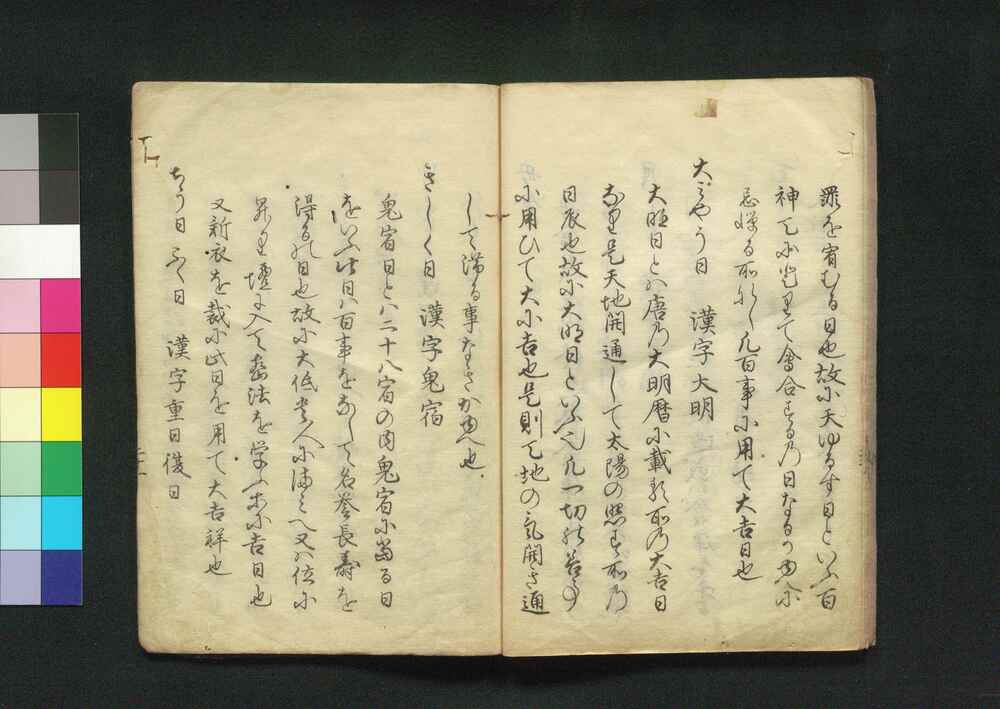 罪を宥むる日也故に天ゆるす日といふ百
神天に[登]りて會合するの日なるか由へに
忌[嫌]る所なし凡百事に用て大吉日也
大みやう日　漢字大明
大明日とハ唐乃大明暦に載る所乃大吉日
なり是天地開通して太陽の照す所乃
日辰也故に大明日といふ也凡一切の善事
に用ひて大に吉也是則天地の氣開き通
して滞る事なきか由へ也
きしく日　漢字鬼宿
鬼宿日とハ二十八宿の内鬼宿に當る日
をいふ此日ハ百事をなして名誉長壽を
得るの日也故に大低貴人にまみへ又ハ位に
昇り壇に入て密法を学ふ等に吉日也
又新衣を裁に此日を用て大吉祥也
ちう日　ふく日　漢字重日復日